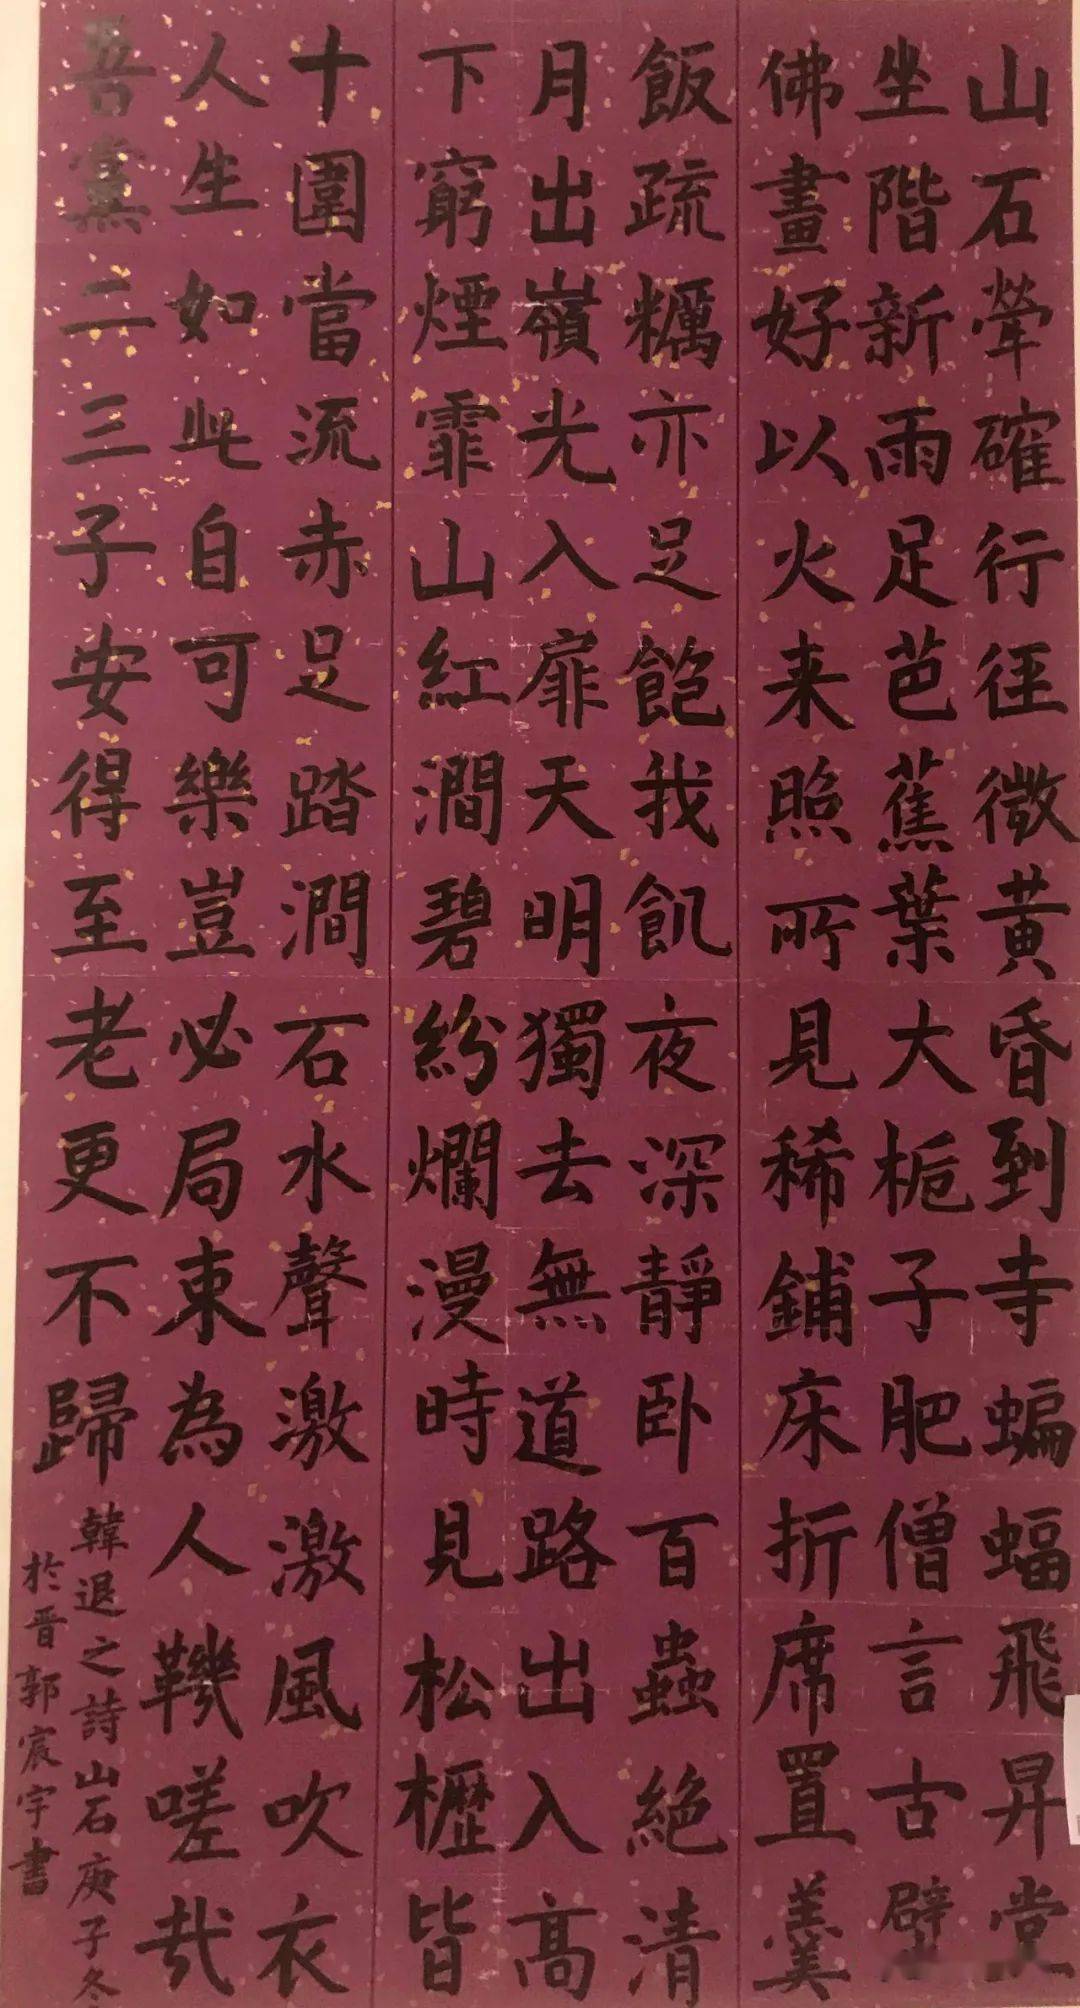 山石犖確行徑微黃昏到寺蝙蝠飛昇堂
坐階新雨足芭蕉葉大梔子肥僧言古壁
佛畫好以火来照所見稀鋪床拂席置羹
飯疏糲亦足飽我飢夜深靜卧百蟲絶清
月出嶺光入扉天明獨去無道路出入高
下窮煙霏山紅澗碧紛爛漫時見松櫪皆
十圍當流赤足踏澗石水聲激激風吹衣
人生如此自可樂豈必局束為人鞿嗟哉
吾黨二三子安得至老更不歸
韓退之詩山石庚子冬
於晋郭宸宇書